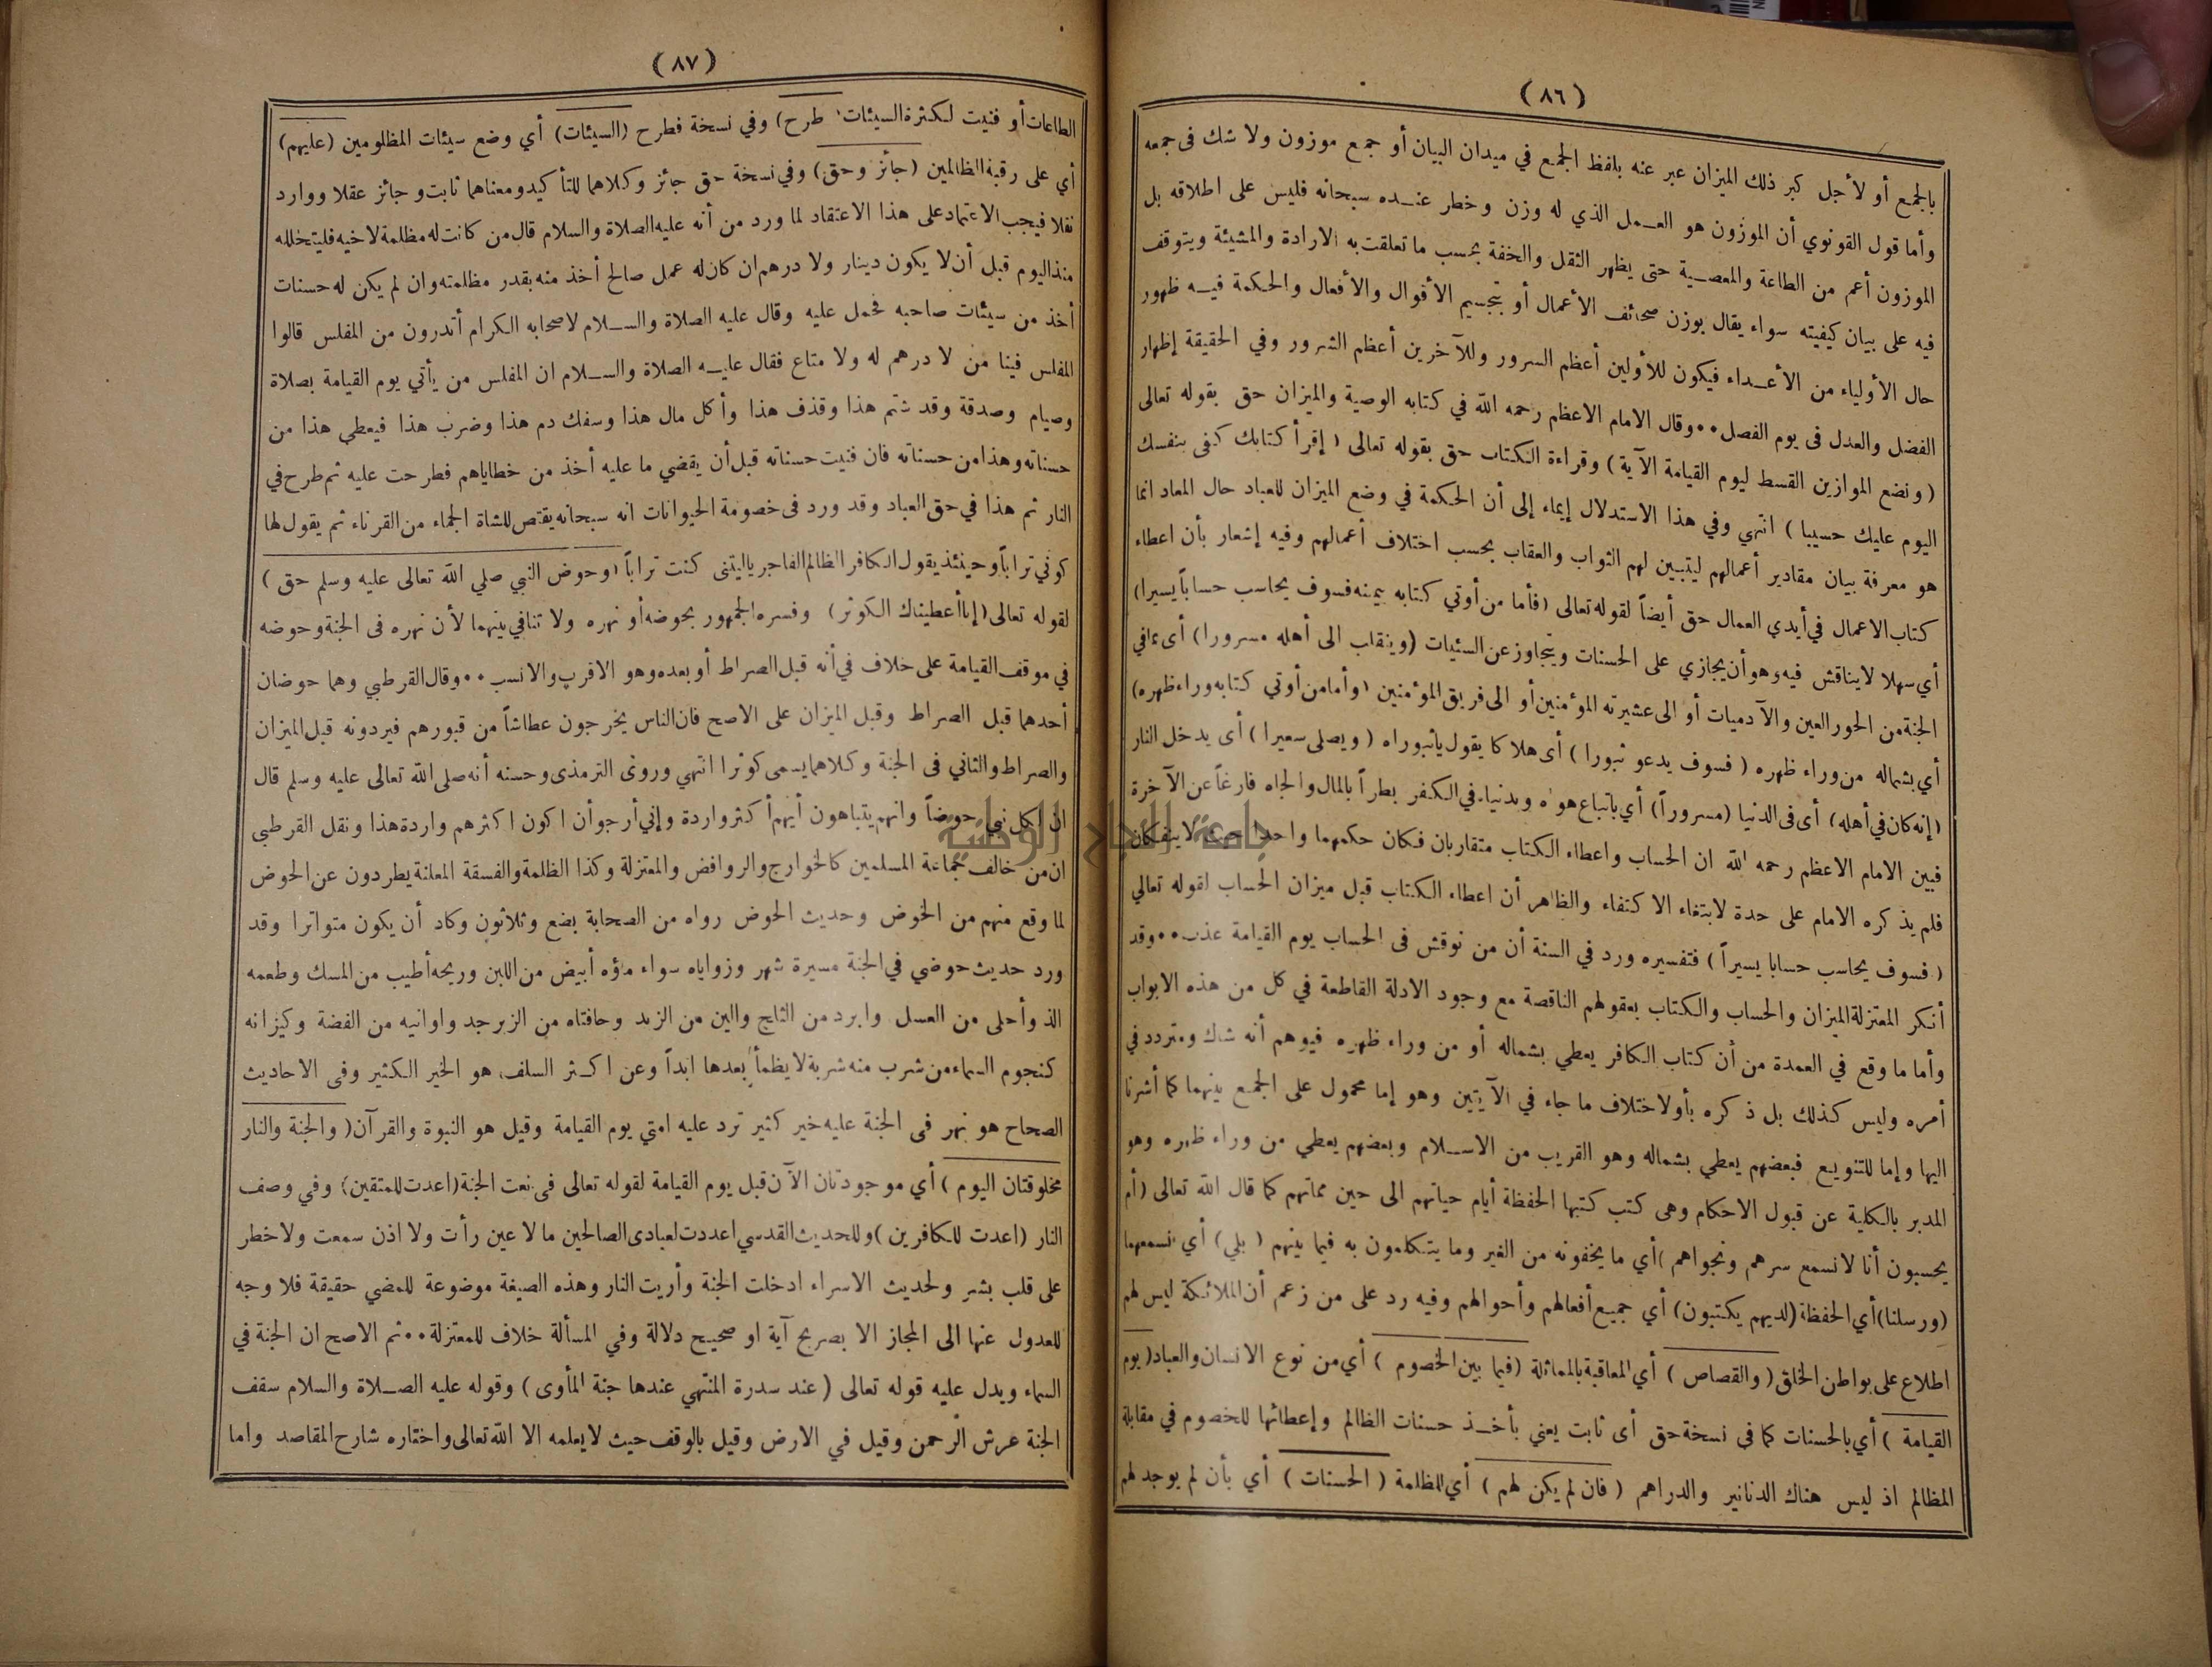 (٨٦)
بالجمع أو لأجل كبر ذلك الميزان عبر عنه بلفظ الجمع في ميدان البيان أو جمع موزون ولا شك فى جمعه
وأما قول القونوي أن الموزون هو العمل الذي له وزن وخطر عنده سبحانه فليس على اطلاقه بل
الموزون أعم من الطاعة والمعصية حتى يظهر الثقل والخفة بحسب ما تعلقت به الارادة والمشيئة ويتوقف
فيه على بيان كيفيته سواء يقال بوزن صحائف الأعمال أو بتجسيم الأقوال والأفعال والحكمة فيه ظهور
حال الأولياء من الأعداء فيكون للأولين أعظم السرور وللآخرين أعظم الشرور وفي الحقيقة إظهار
الفضل والعدل فى يوم الفصل •• وقال الامام الاعظم رحمه الله في كتابه الوصية والميزان حق بقوله تعالى
(ونضع الموازين القسط ليوم القيامة الآية) وقراءة الكتاب حق بقوله تعالى (إقرأ كتابك كفى بنفسك
اليوم عليك حسيبا) انتهي وفي هذا الاستدلال إيماء إلى أن الحكمة في وضع الميزان للعباد حال المعاد انما
هو معرفة بيان مقادير أعمالهم ليتبين لهم الثواب والعقاب بحسب اختلاف أعمالهم وفيه إشعار بأن اعطاء
كتاب الاعمال في أيدي العمال حق أيضاً لقوله تعالى (فأما من أوتي كتابه بيمينه فسوف يحاسب حساباً يسيرا)
أي سهلا لا يناقش فيه وهو أن يجازي على الحسنات ويتجاوز عن السئيات (وينقلب الى أهله مسرورا) أى بما في
الجنة من الحور العين والآدميات أو الى عشيرته المؤمنين أو الى فريق المؤمنين (وأما من أوتي كتابه وراء ظهره)
أي بشماله من وراء ظهره (فسوف يدعو ثبورا) أى هلا كا يقول يا ثبوراه (ويصلى سعيرا) أى يدخل النار
(إنه كان في أهله) أى فى الدنيا (مسروراً) أي باتباع هواه وبدنياه في الكفر بطراً بالمال والجاه فارغاً عن الآخرة
فبين الامام الاعظم رحمه الله ان الحساب واعطاء الكتاب متقاربان فكان حكمهما واحدا حيث لا ينفكان
فلم يذكره الامام على حدة لابتغاء الاكتفاء والظاهر أن اعطاء الكتاب قبل ميزان الحساب لقوله تعالي
(فسوف يحاسب حسابا يسيراً) فتفسيره ورد في السنة أن من نوقش فى الحساب يوم القيامة عذب •• وقد
أنكر المعتزلة الميزان والحساب والكتاب بعقولهم الناقصة مع وجود الادلة القاطعة في كل من هذه الابواب
وأما ما وقع في العمدة من أن كتاب الكافر يعطي بشماله أو من وراء ظهره فيوهم أنه شاك ومتردد في
أمره وليس كذلك بل ذكره بأو لاختلاف ما جاء في الآيتين وهو إما محمول على الجمع بينهما كما أشرنا
اليها وإما للتنويع فبعضهم يعطي بشماله وهو القريب من الاسلام وبعضهم يعطي من وراء ظهره وهو
المدبر بالكلية عن قبول الاحكام وهى كتب كتبها الحفظة أيام حياتهم الى حين مماتهم كما قال الله تعالى (أم
يحسبون أنا لا نسمع سرهم ونجواهم) أي ما يخفونه من الغير وما يتكلمون به فيما بينهم (بلي) أي نسمعهما
(ورسلنا) أي الحفظة (لديهم يكتبون) أي جميع أفعالهم وأحوالهم وفيه رد على من زعم أن الملائكة ليس لهم
اطلاع على بواطن الخلق (والقصاص) أي المعاقبة بالمماثلة (فيما بين الخصوم) أي من نوع الانسان والعباد (يوم
القيامة) أي بالحسنات كما فى نسخة حق أى ثابت يعني بأخذ حسنات الظالم وإعطائها للخصوم في مقابلة
المظالم اذ ليس هناك الدنانير والدراهم (فان لم يكن لهم) أي للظلمة (الحسنات) أي بأن لم يوجد لهم
(٨٧)
الطاعات أو فنيت لكثرة السيئات (طرح) وفي نسخة فطرح (السيئات) أي وضع سيئات المظلومين (عليهم)
أي على رقبة الظالمين (جائز وحق) وفي نسخة حق جائز وكلاهما للتأكيد ومعناهما ثابت وجائز عقلا ووارد
نقلا فيجب الاعتماد على هذا الاعتقاد لما ورد من أنه عليه الصلاة والسلام قال من كانت له مظلمة لاخيه فليتحلله
منذ اليوم قبل أن لا يكون دينار ولا درهم ان كان له عمل صالح أخذ منه بقدر مظلمته وان لم يكن له حسنات
أخذ من سيئات صاحبه فحمل عليه وقال عليه الصلاة والسلام لاصحابه الكرام أتدرون من المفلس قالوا
المفلس فينا من لا درهم له ولا متاع فقال عليه الصلاة والسلام ان المفلس من يأتي يوم القيامة بصلاة
وصيام وصدقة وقد شتم هذا وقذف هذا وأكل مال هذا وسفك دم هذا وضرب هذا فيعطي هذا من
حسناته وهذا من حسناته فان فنيت حسناته قبل أن يقضي ما عليه أخذ من خطاياهم فطرحت عليه ثم طرح في
النار ثم هذا في حق العباد وقد ورد فى خصومة الحيوانات انه سبحانه يقتص للشاة الجماء من القرناء ثم يقول لها
كوني تراباً وحينئذ يقول الكافر الظالم الفاجر ياليتنى كنت تراباً (وحوض النبي صلي الله تعالى عليه وسلم حق)
لقوله تعالى (إنا أعطيناك الكوثر) وفسره الجمهور بحوضه أو نهره ولا تنافي بينهما لأن نهره فى الجنة وحوضه
في موقف القيامة على خلاف في أنه قبل الصراط أو بعده وهو الاقرب والانسب •• وقال القرطبي وهما حوضان
أحدهما قبل الصراط وقبل الميزان على الاصح فان الناس يخرجون عطاشاً من قبورهم فيردونه قبل الميزان
والصراط والثاني فى الجنة وكلاهما يسمى كوثرا انتهي وروى الترمذى وحسنه أنه صلى الله تعالى عليه وسلم قال
ان لكل نبي حوضاً وانهم يتباهون أيهم أكثر واردة وإني أرجو أن اكون اكثرهم واردة هذا ونقل القرطبى
ان من خالف جماعة المسلمين كالخوارج والروافض والمعتزلة وكذا الظلمة والفسقة المعلنة يطردون عن الحوض
لما وقع منهم من الخوض وحديث الحوض رواه من الصحابة بضع وثلاثون وكاد أن يكون متواترا وقد
ورد حديث حوضي في الجنة مسيرة شهر وزواياه سواء ماؤه أبيض من اللبن وريحه أطيب من المسك وطعمه
الذ وأحلى من العسل وابرد من الثلج والين من الزبد وحافتاه من الزبرجد واوانيه من الفضة وكيزانه
كنجوم السماء من شرب منه شربة لا يظمأ بعدها ابداً وعن اكثر السلف هو الخير الكثير وفى الاحاديث
الصحاح هو نهر فى الجنة عليه خير كثير ترد عليه امتي يوم القيامة وقيل هو النبوة والقرآن (والجنة والنار
مخلوقتان اليوم) أي موجودتان الآن قبل يوم القيامة لقوله تعالى فى نعت الجنة (اعدت للمتقين) وفي وصف
النار (اعدت للكافرين) وللحديث القدسي اعددت لعبادى الصالحين ما لا عين رأت ولا اذن سمعت ولا خطر
على قلب بشر ولحديث الاسراء ادخلت الجنة وأريت النار وهذه الصيغة موضوعة للمضي حقيقة فلا وجه
للعدول عنها الى المجاز الا بصريح آية او صحيح دلالة وفي المسألة خلاف للمعتزلة •• ثم الاصح ان الجنة في
السماء ويدل عليه قوله تعالى (عند سدرة المنتهي عندها جنة المأوى) وقوله عليه الصلاة والسلام سقف
الجنة عرش الرحمن وقيل في الارض وقيل بالوقف حيث لا يعلمه الا الله تعالى واختاره شارح المقاصد واما
جامعة النجاح الوطنية